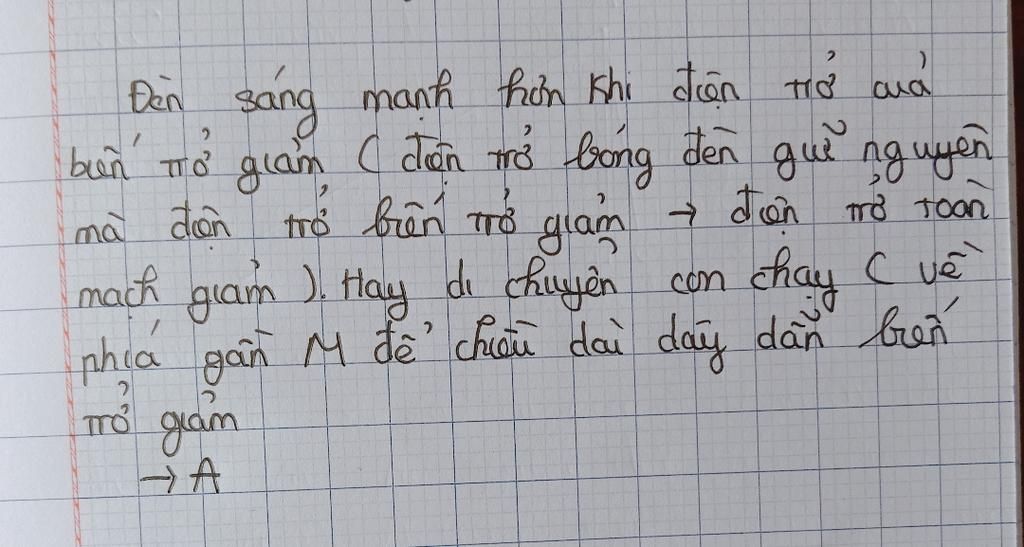 Đèn sáng mạnh hơn khi điện trở quả
biến trở giảm ( điện trở bóng đèn giữ nguyên
mà điện trở biến trở giảm → điện trở toàn
mạch giảm ). Hay di chuyển con chạy C về
phía gần M để chiều dài dây dẫn biến
trở giảm
→ A